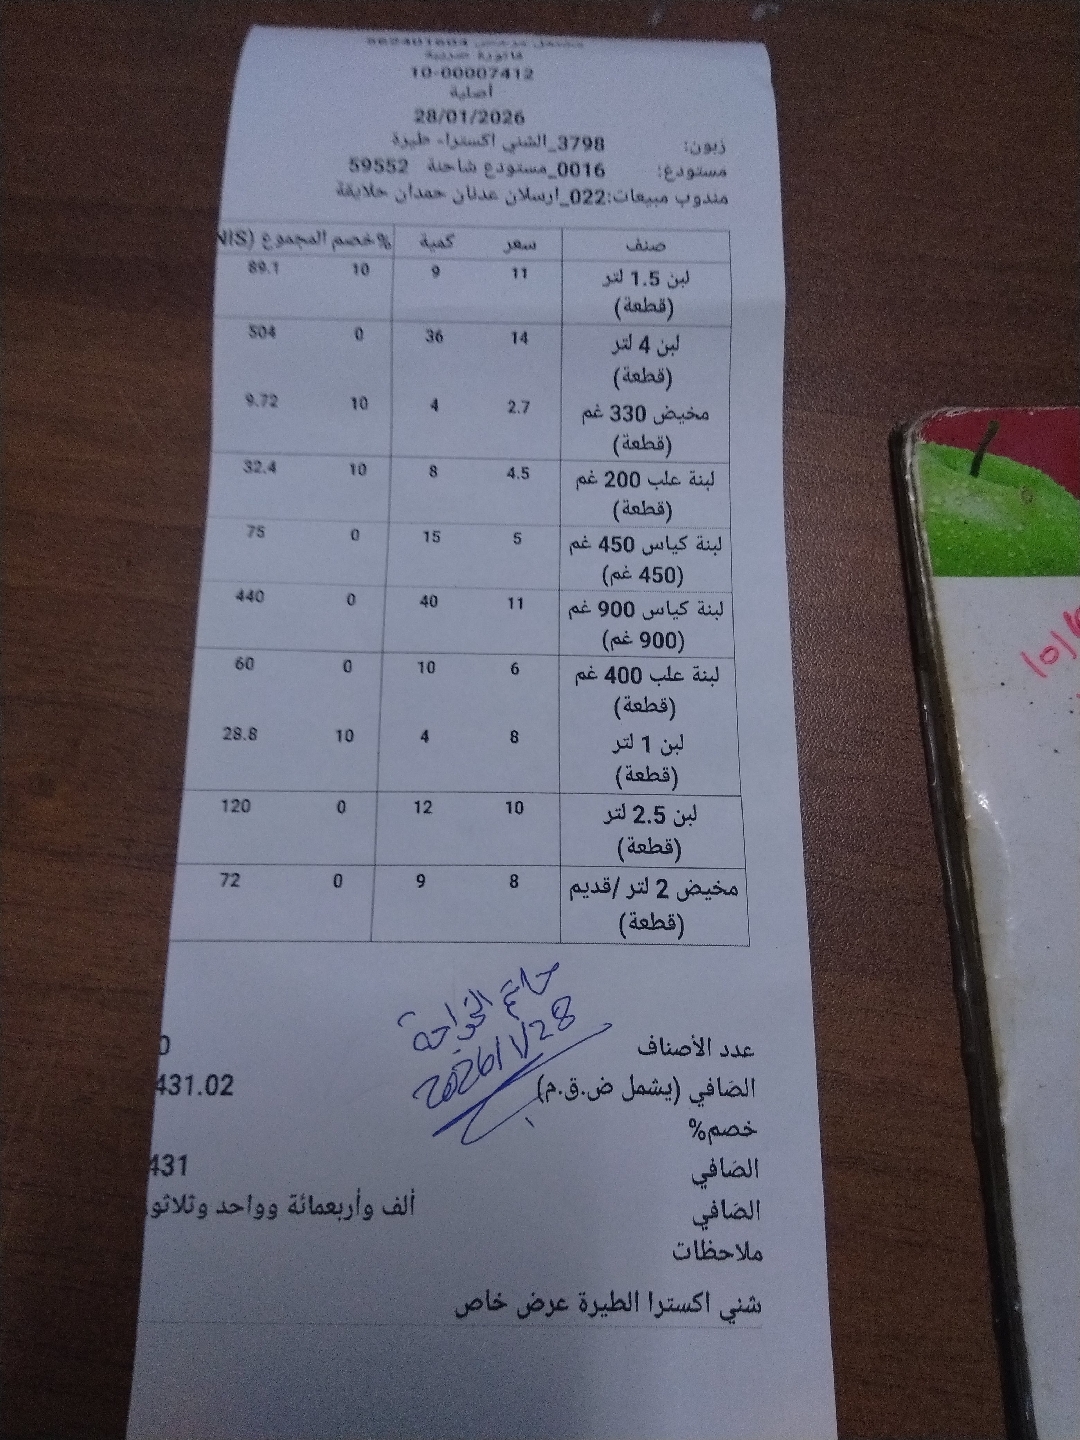 مشتمل مرخص 562401604
فاتورة ضريبة
10-00007412
أصلية
28/01/2026
زبون: 3798_الشني اكسترا- طيرة
مستودع: 0016_مستودع شاحنة 59552
مندوب مبيعات:022_ارسلان عدنان حمدان حلايقة
صنف سعر كمية %خصم المجموع (NIS
لبن 1.5 لتر 11 9 10 89.1
(قطعة)
لبن 4 لتر 14 36 0 504
(قطعة)
مخيض 330 غم 2.7 4 10 9.72
(قطعة)
لبنة علب 200 غم 4.5 8 10 32.4
(قطعة)
لبنة كياس 450 غم 5 15 0 75
(450 غم)
لبنة كياس 900 غم 11 40 0 440
(900 غم)
لبنة علب 400 غم 6 10 0 60
(قطعة)
لبن 1 لتر 8 4 10 28.8
(قطعة)
لبن 2.5 لتر 10 12 0 120
(قطعة)
مخيض 2 لتر /قديم 8 9 0 72
(قطعة)
حاتم الخواجة
2026/1/28
عدد الأصناف 0
الصافي (يشمل ض.ق.م) 431.02
خصم%
الصافي 431
الصافي ألف وأربعمائة وواحد وثلاثو
ملاحظات
شني اكسترا الطيرة عرض خاص
10/